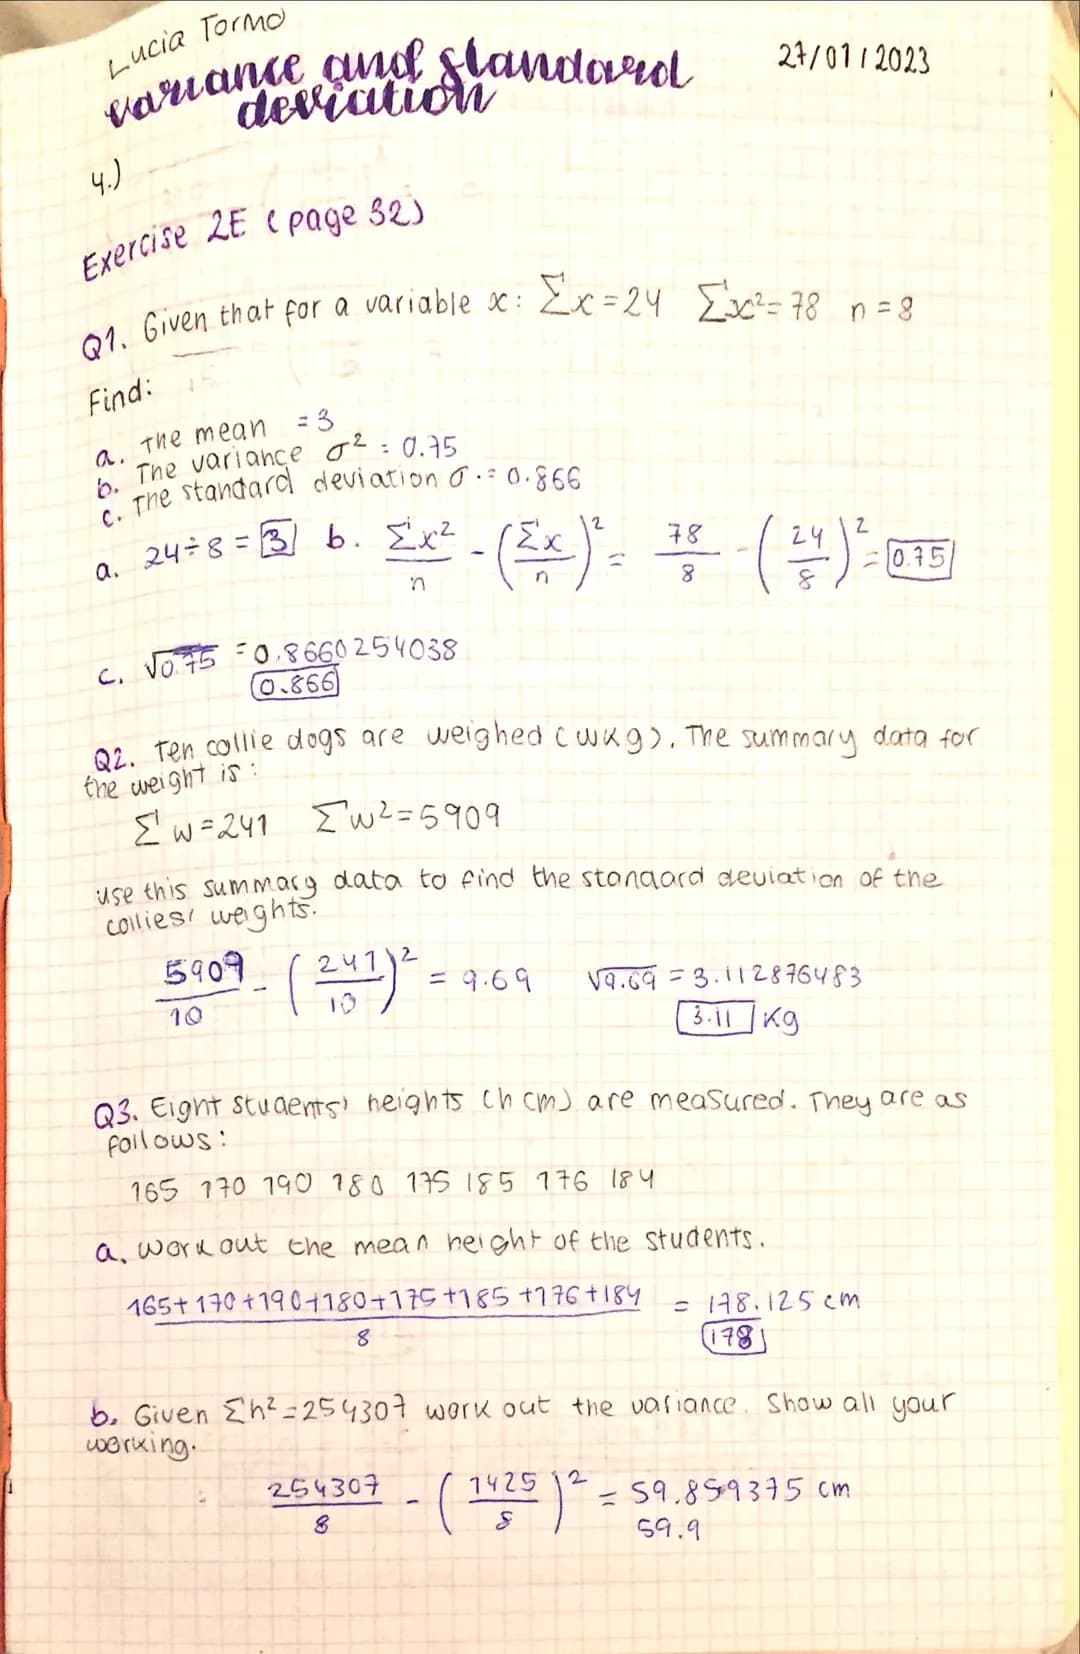 Lucia Tormo
27/01/2023
variance and standard
deviation
4.)
Exercise 2E (page 32)
Q1. Given that for a variable x: Σx=24 Σx²=78 n=8
Find:
a. The mean = 3
b. The variance σ² = 0.75
c. The standard deviation σ. = 0.866
a. 24÷8 = 3 b. Σx²/n - (Σx/n)² = 78/8 - (24/8)² = 0.75
c. √0.75 = 0.8660254038
0.866
Q2. Ten collie dogs are weighed (wkg). The summary data for
the weight is:
Σw=241 Σw²=5909
use this summary data to find the standard deviation of the
collies' weights.
5909/10 - (241/10)² = 9.69 √9.69 = 3.112876483
3.11 Kg
Q3. Eight students' heights (h cm) are measured. They are as
follows:
165 170 190 180 175 185 176 184
a. work out the mean height of the students.
165+170+190+180+175+185+176+184/8 = 178.125 cm
178
b. Given Σh²=254307 work out the variance. Show all your
working.
254307/8 - (1425/8)² = 59.859375 cm
59.9